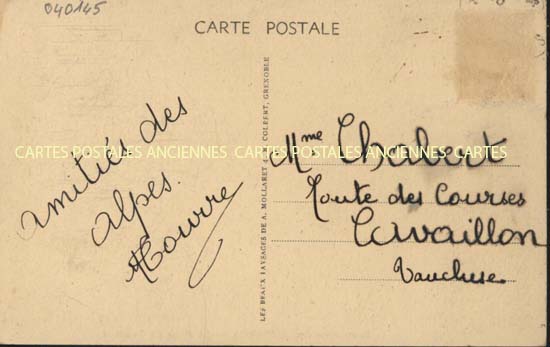 040145
CARTE POSTALE
amitiés des
Alpes.
HOurre
LES BEAUX PAYSAGES DE A. MOLLARET COLBERT, GRENOBLE
CARTES POSTALES ANCIENNES CARTES POSTALES ANCIENNES
Mme Chabert
Route des Courses
Cavaillon
Vaucluse.